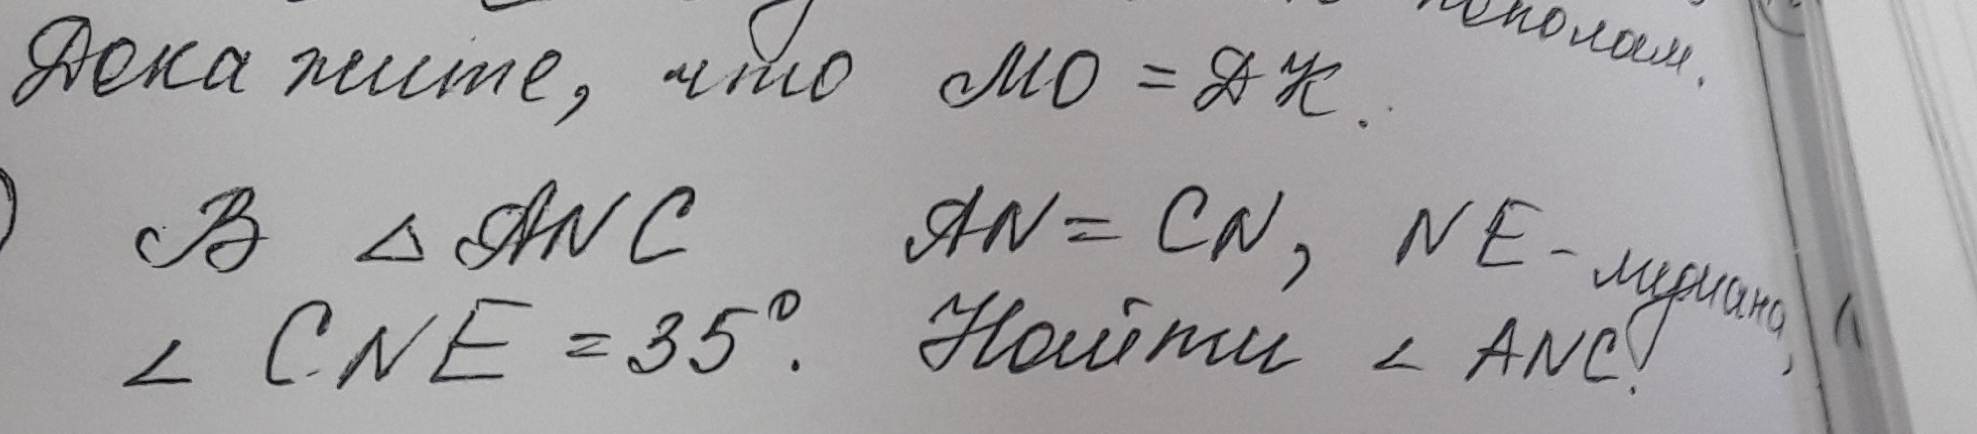 пополам.
Докажите, что MO = ДК.
) В △ ANC AN = CN, NE - медиана,
∠ CNE = 35°. Найти ∠ ANC.